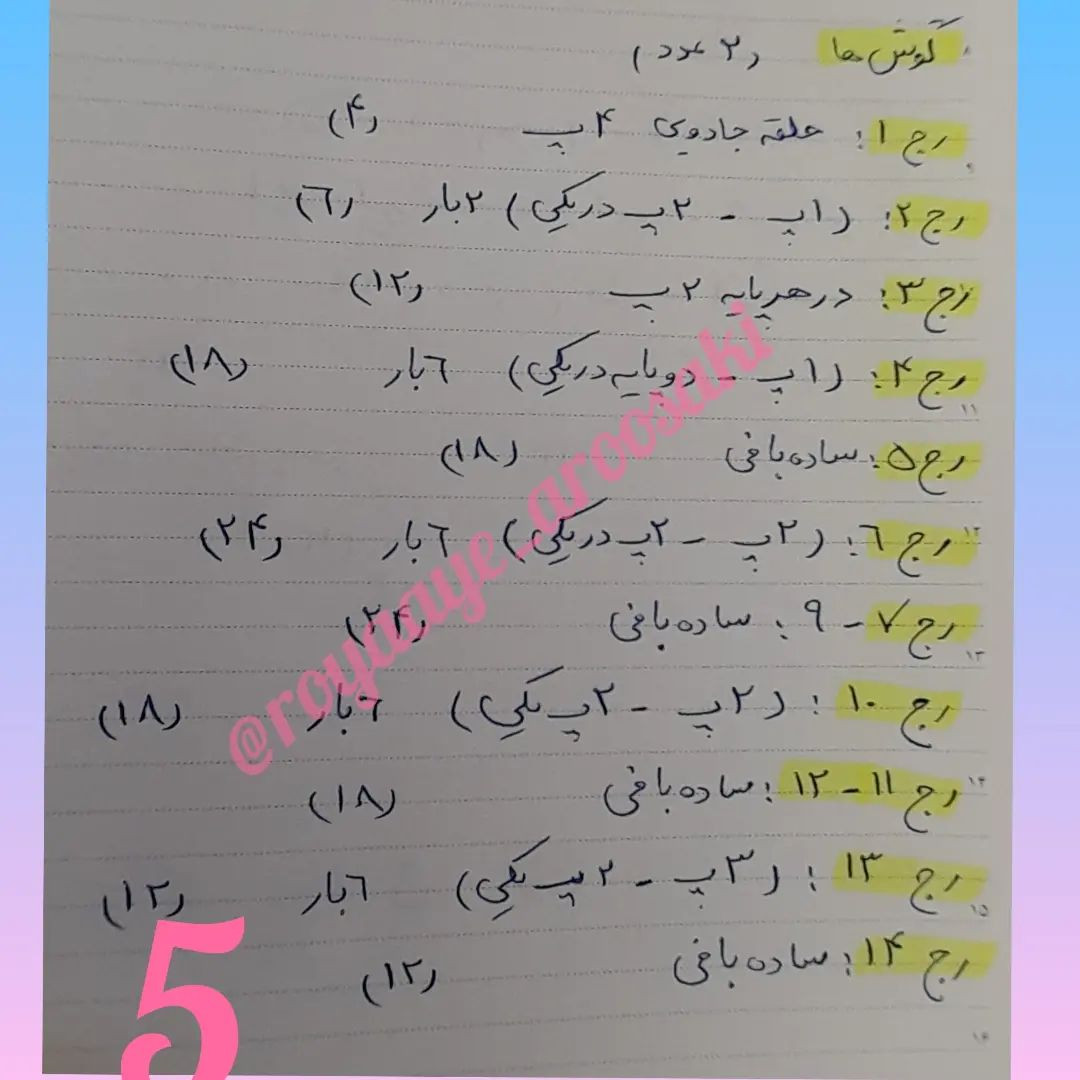 گوش ها (۲ عدد)
رج ۱: حلقه جادویی ۴ پ (۴)
رج ۲: (۱پ - ۲پ دریکی) ۲ بار (٦)
رج ۳: در هر پایه ۲ پ (۱۲)
رج ۴: (۱پ - دوپایه دریکی) ٦ بار (۱۸)
رج ۵: ساده بافی (۱۸)
رج ٦: (۲پ - ۲پ دریکی) ٦ بار (۲۴)
رج ۷ - ۹: ساده بافی (۲۴)
رج ۱۰: (۲پ - ۲پ یکی) ٦ بار (۱۸)
رج ۱۱ - ۱۲: ساده بافی (۱۸)
رج ۱۳: (۳پ - ۲پ یکی) ٦ بار (۱۲)
رج ۱۴: ساده بافی (۱۲)
@royaaye_aroosaki
5